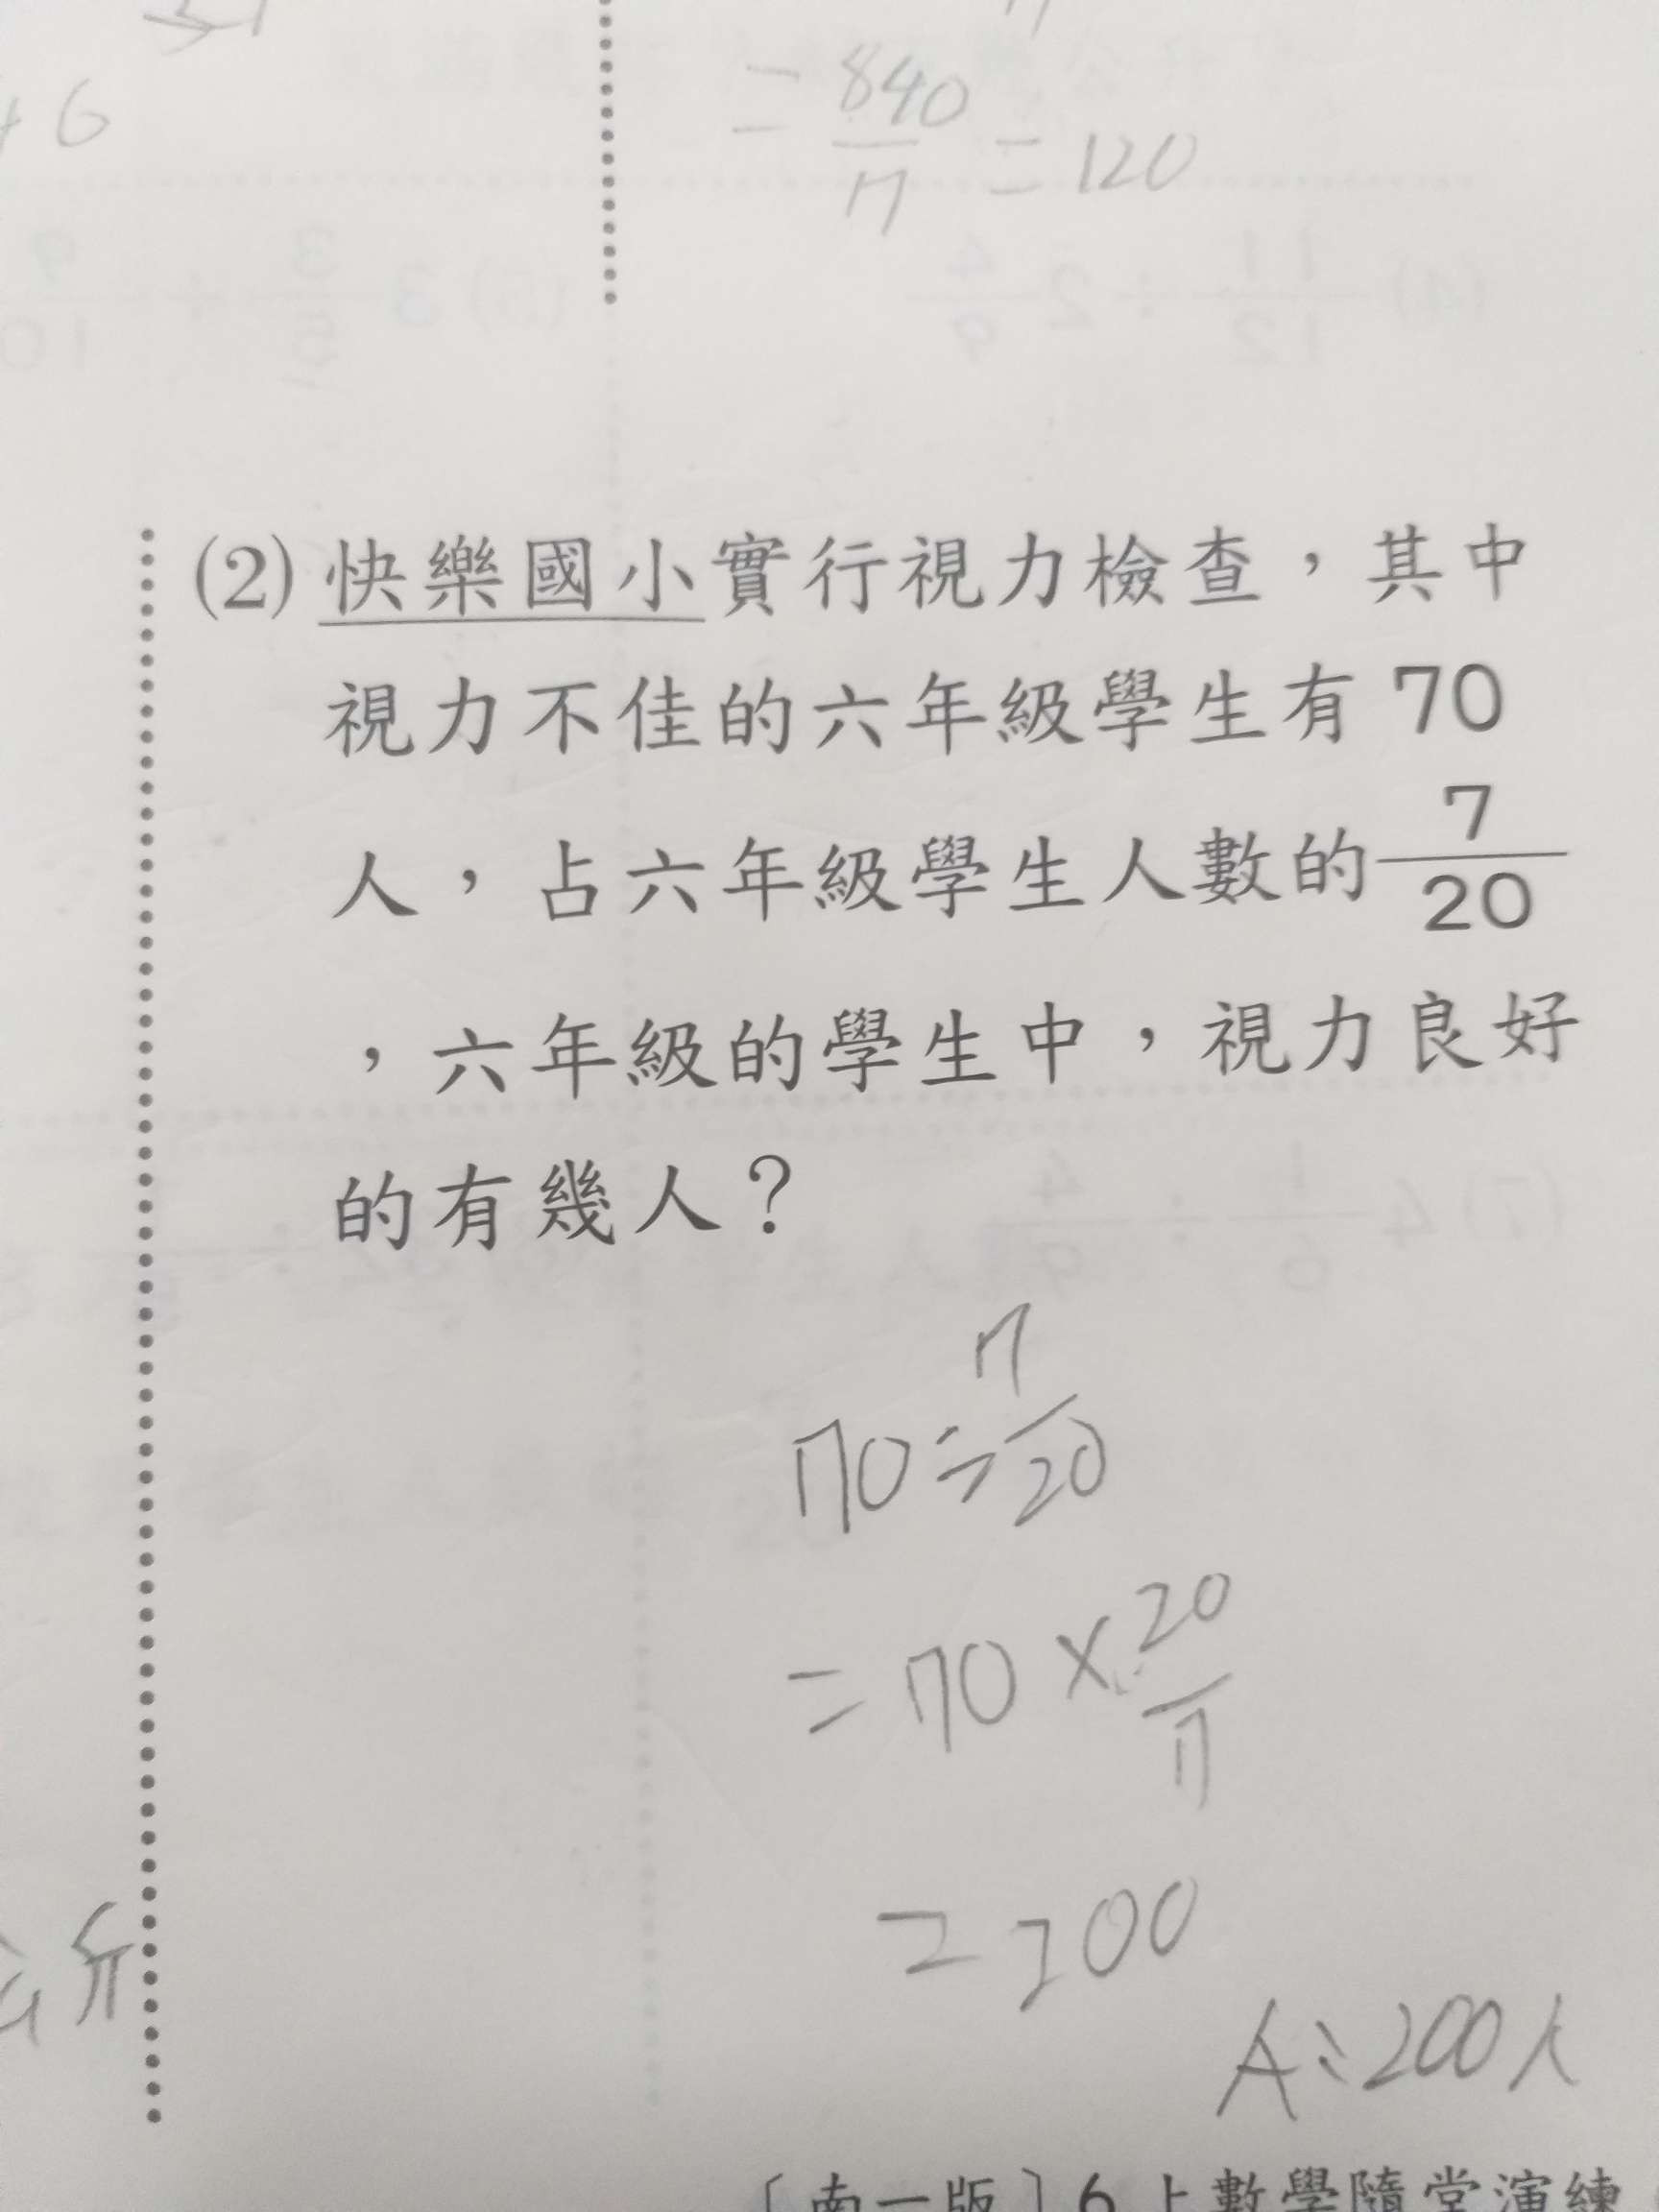 6
= 840/7 = 120
(2) 快樂國小實行視力檢查，其中
視力不佳的六年級學生有 70
人，占六年級學生人數的 7/20
，六年級的學生中，視力良好
的有幾人？
70÷7/20
=70×20/7
=200
A:200人
〔南一版〕6上數學隨堂演練